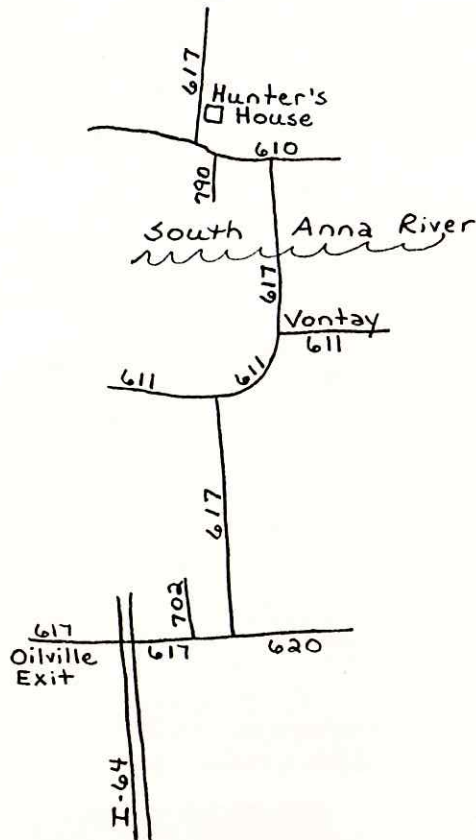 617
Hunter's
House
610
790
South Anna River
617
Vontay
611
611
611
617
702
617
Oilville
Exit
617
620
I-64